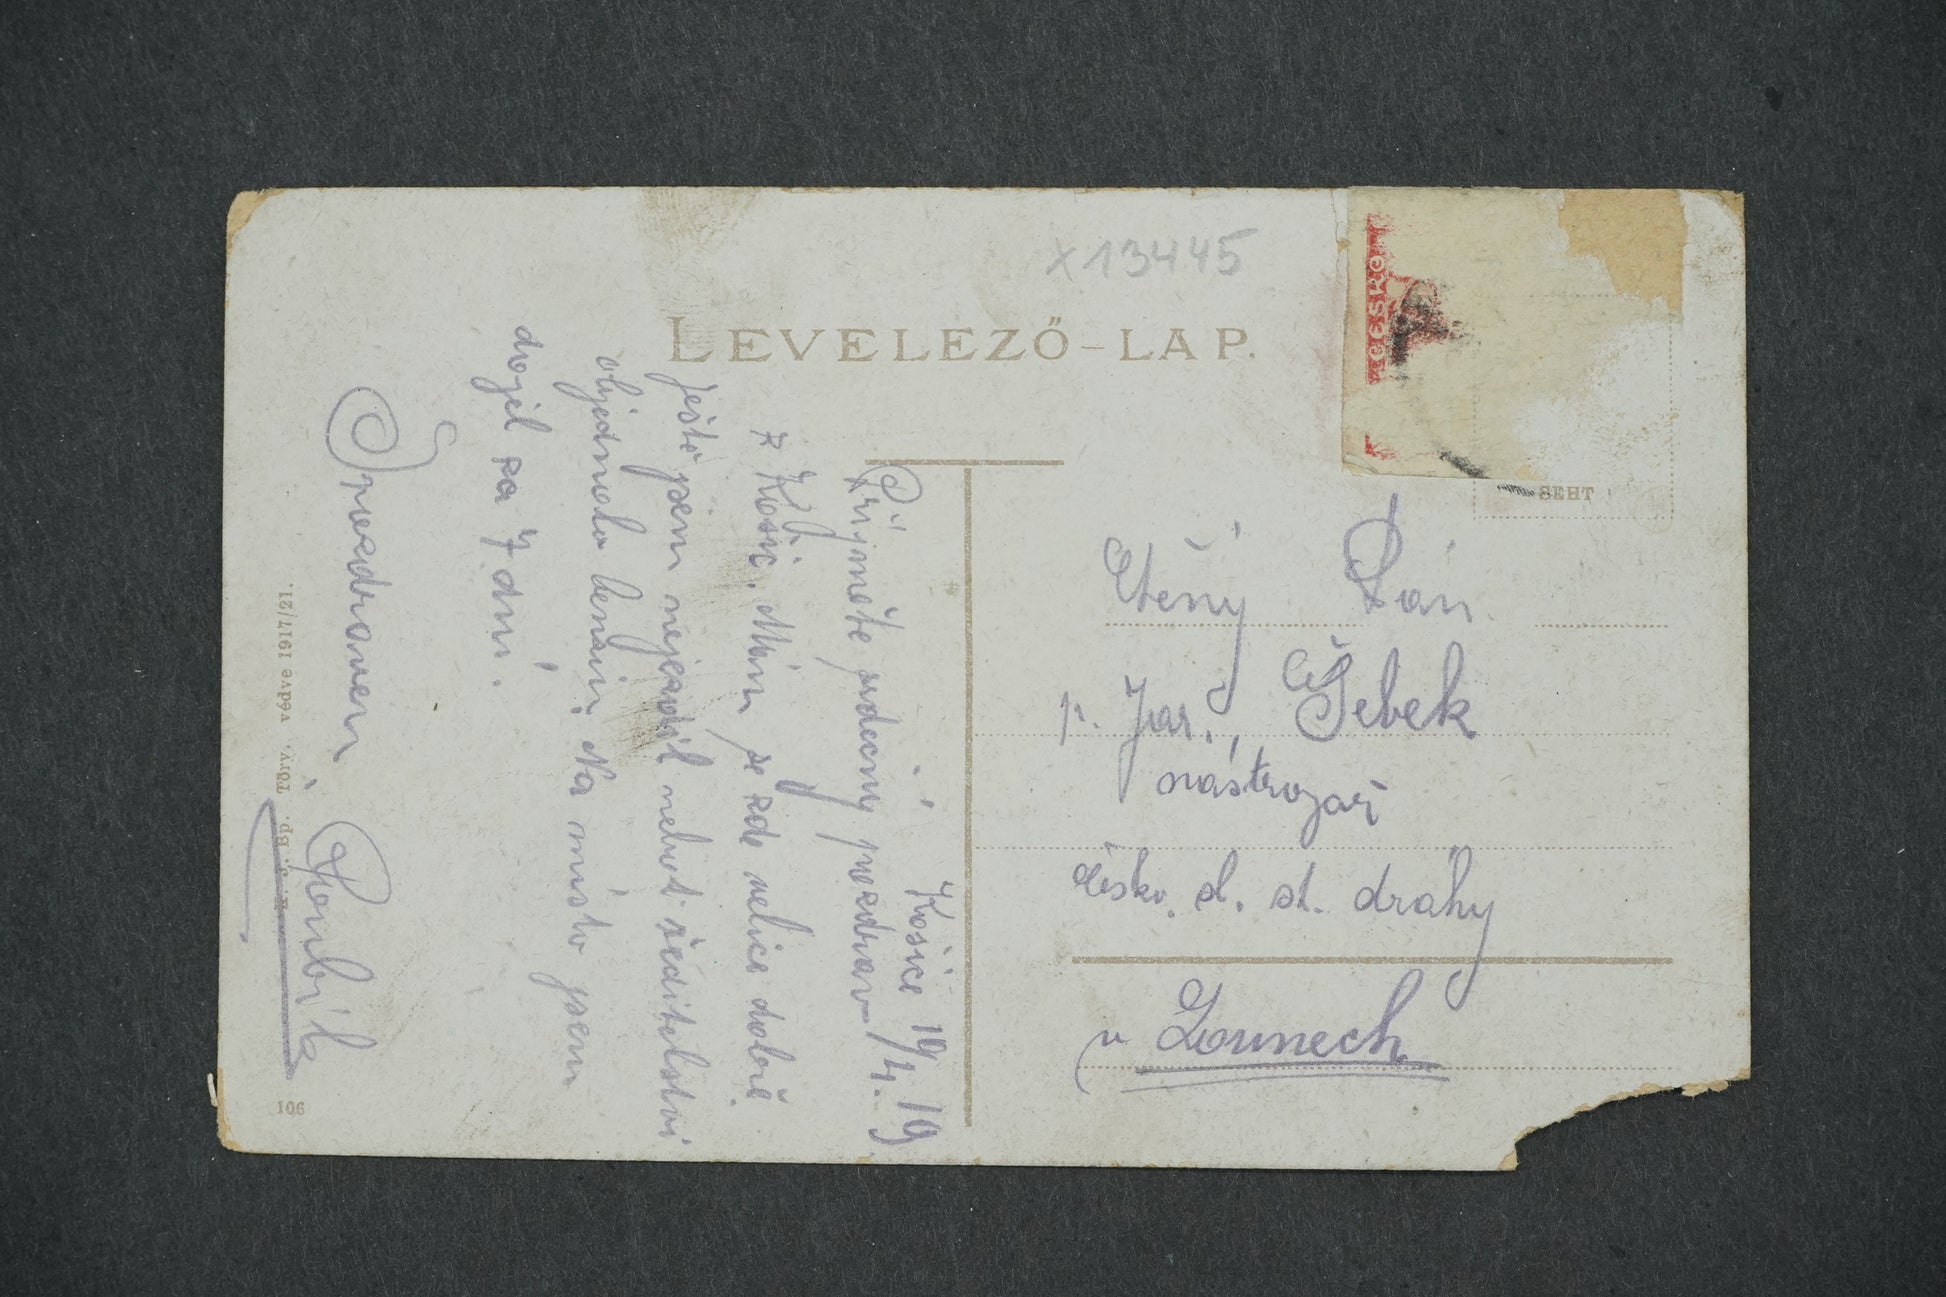 x13445
LEVELEZŐ-LAP.
ČESKO
SEHT
Košice 19/4. 19
Přijměte srdečný pozdrav
z Košic. Mám se zde velice dobře.
Ještě jsem nejezdil neboť ředitelství
objednalo benzin. Na místo jsem
dojel za 7 dní.
S pozdravem
Ctěný Pán
p. Jar. Šebek
nástrojař
česko. sl. st. dráhy
v Lounech
Törv. védve 1917/21.
106